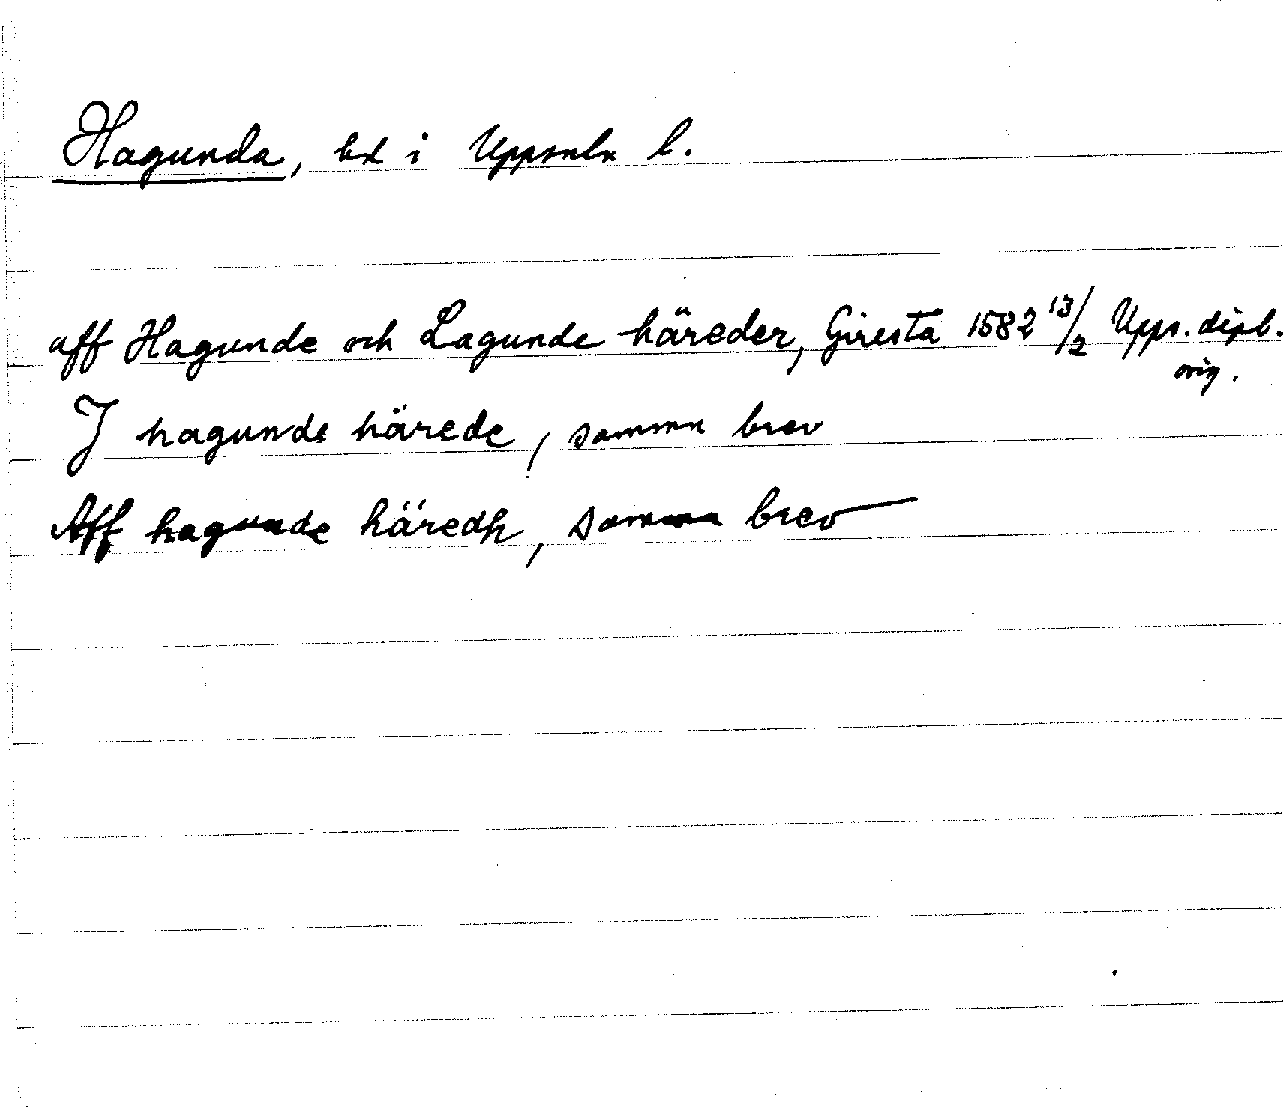 Hagunda, hd i Uppsala l.
aff Hagunde och Lagunde häreder, Giresta 1582 13/2 Upps. dipl.
orig.
J hagunde härede, samma brev
Aff hagunde häredh, samma brev